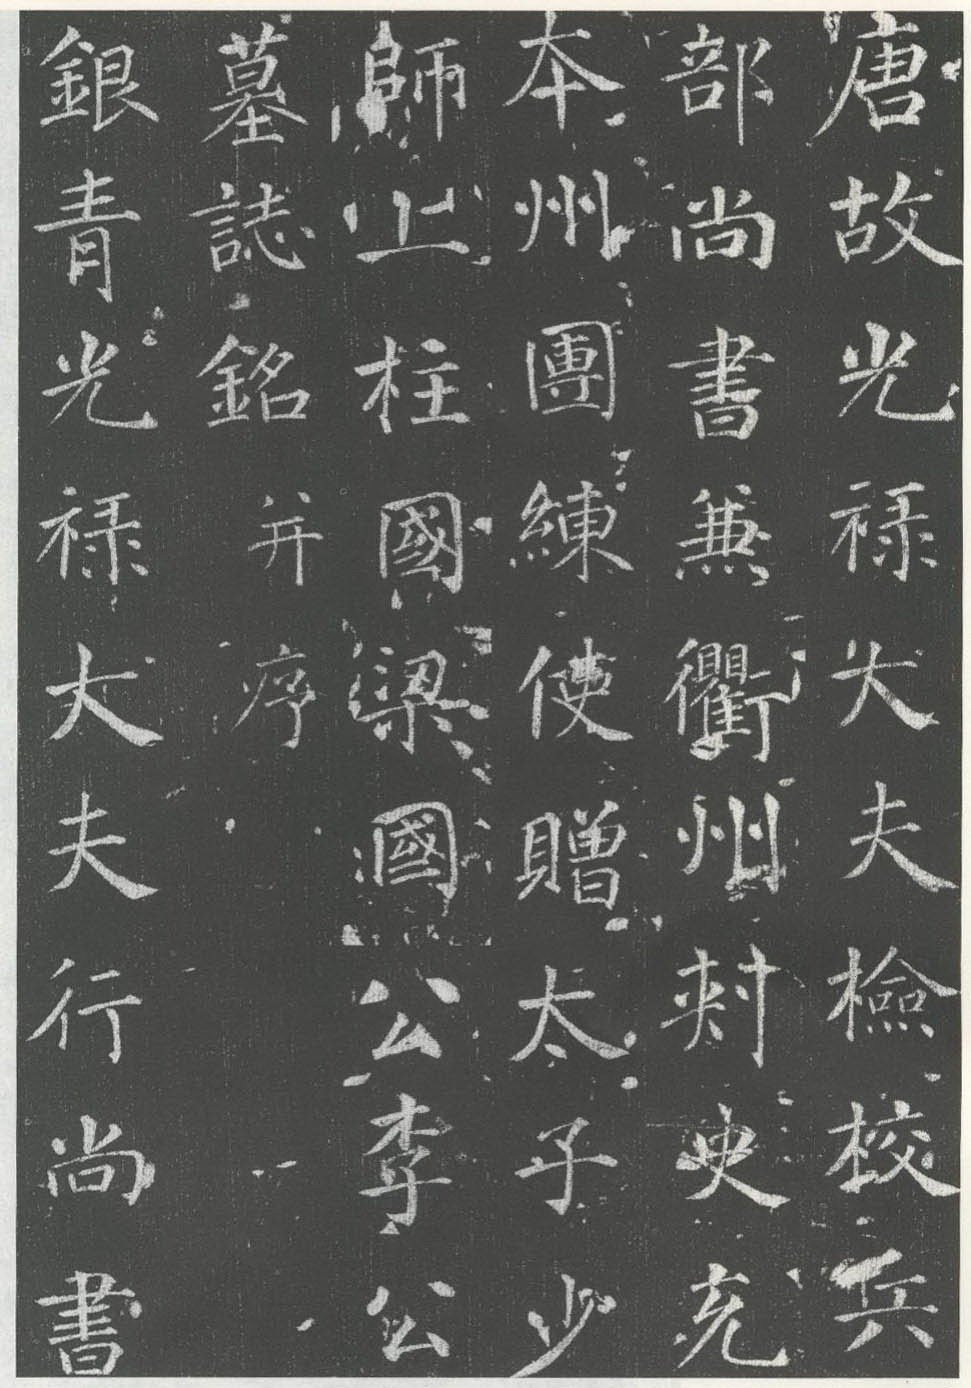 唐故光禄大夫檢校兵
部尚書兼衢州刾史充
本州團練使贈太子少
師上柱國梁國公李公
墓誌銘并序
銀青光禄大夫行尚書